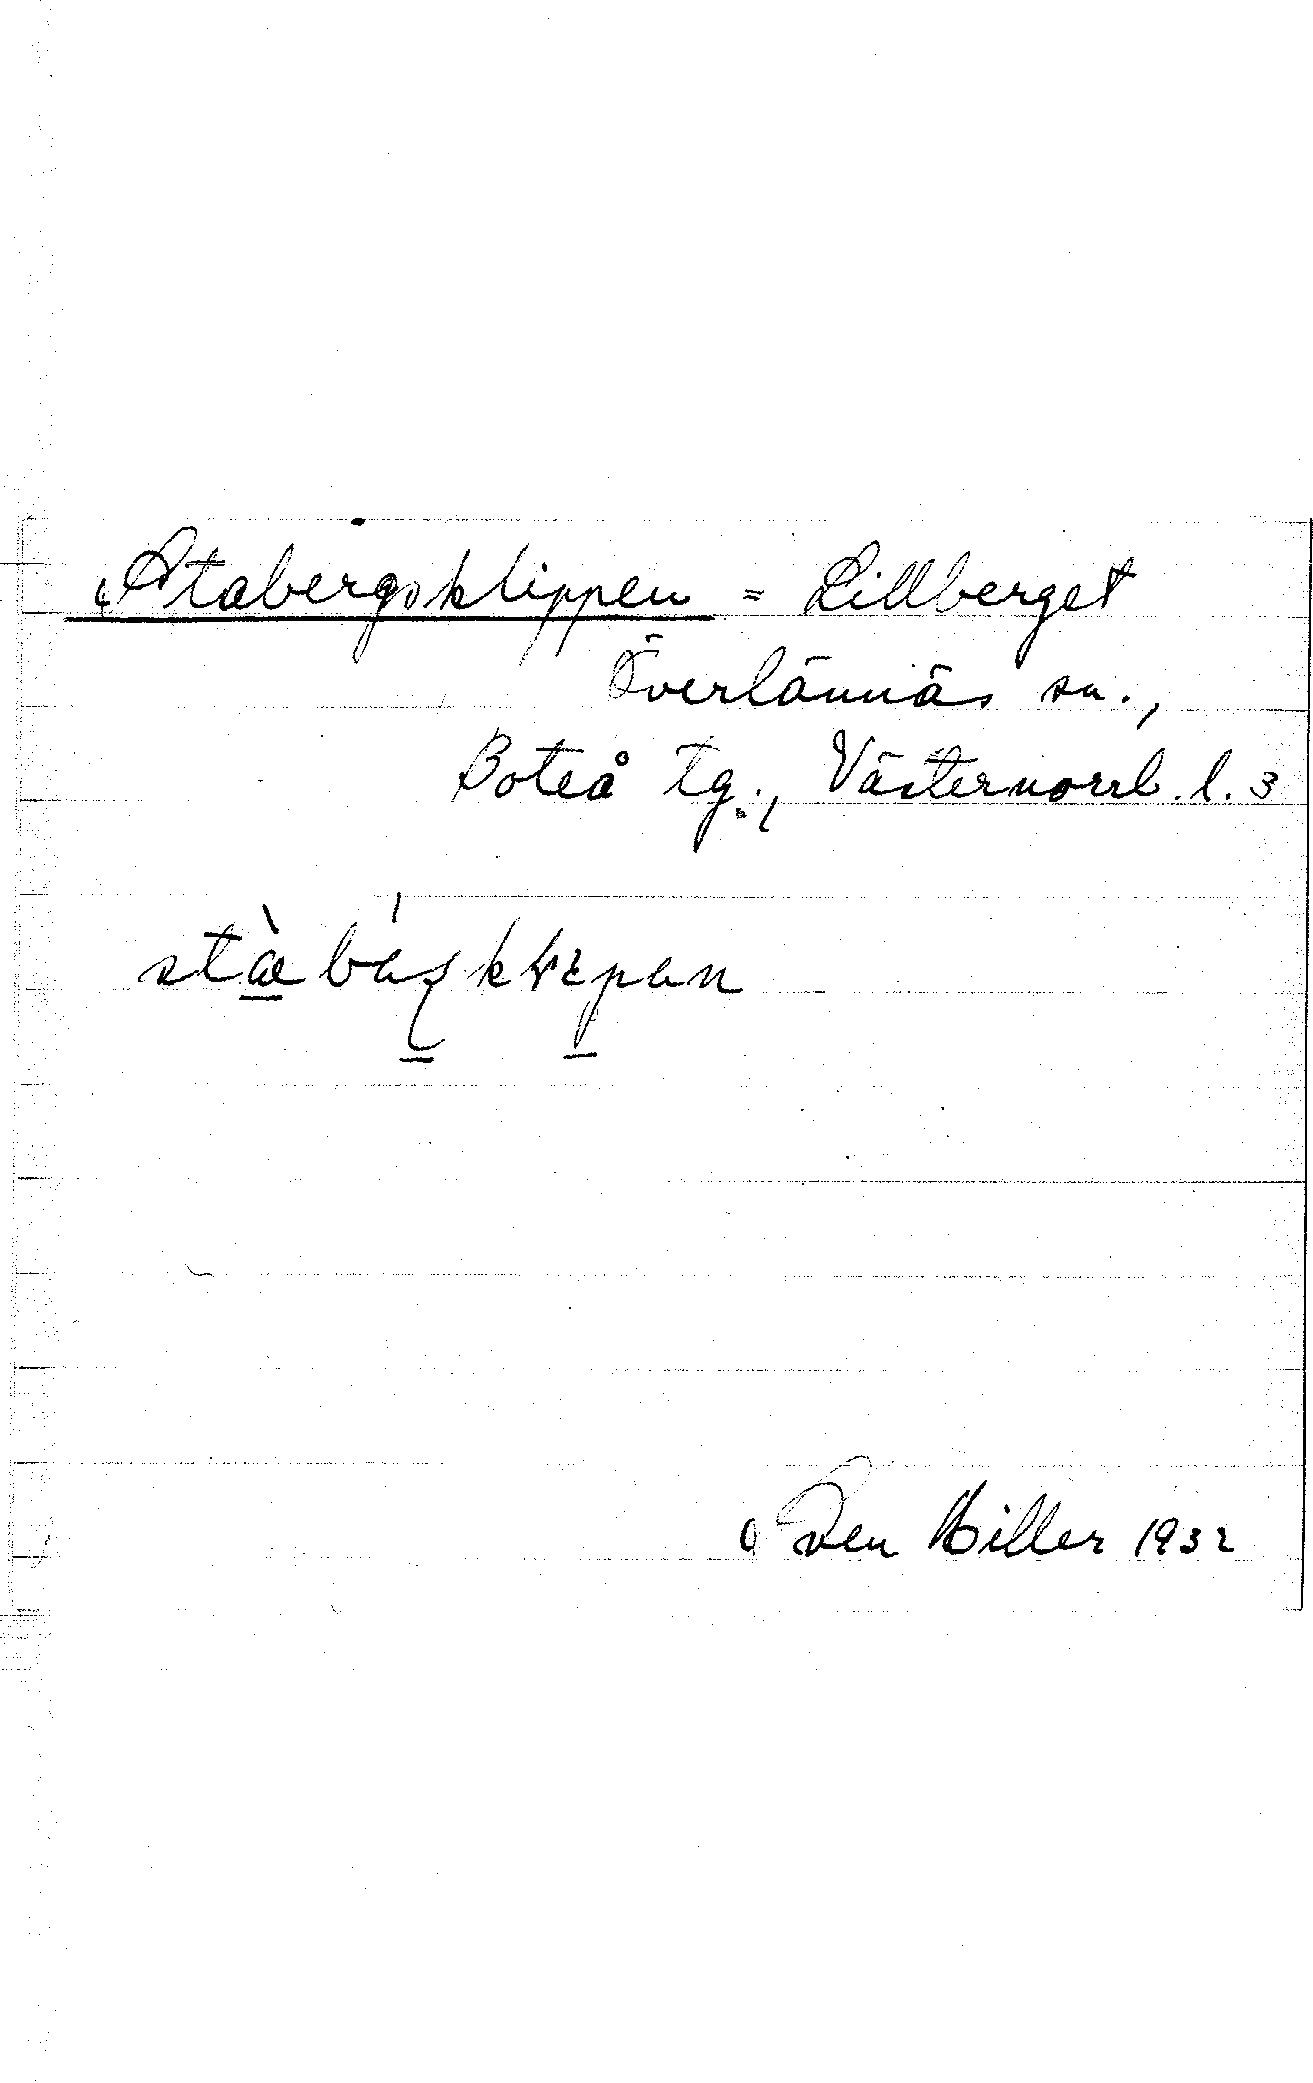 Stabergsklippen = Lillberget
Överlännäs sn.,
Boteå tg., Västernorrl. l. 3
Sven Hiller 1932